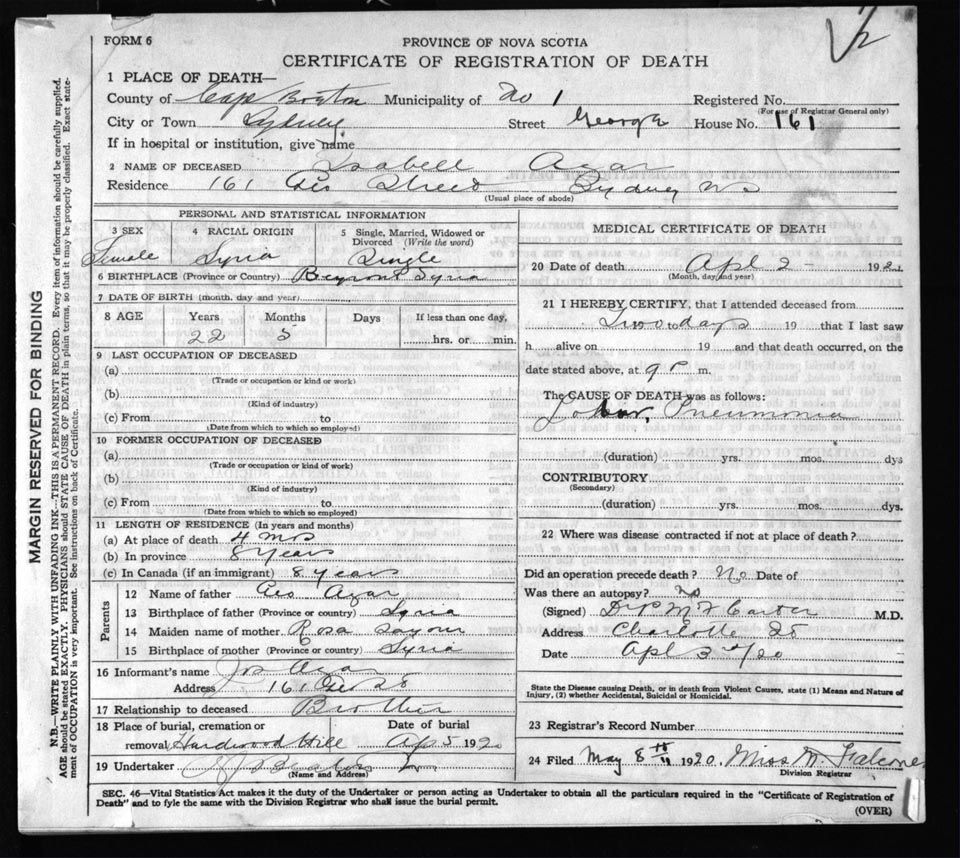 V2
FORM 6
PROVINCE OF NOVA SCOTIA
CERTIFICATE OF REGISTRATION OF DEATH
1 PLACE OF DEATH—
County of Cape Breton Municipality of No 1 Registered No.
(For use of Registrar General only)
City or Town Sydney Street George House No. 161
If in hospital or institution, give name
2 NAME OF DECEASED Isabell Azar
Residence 161 Geo Street Sydney NS
(Usual place of abode)
PERSONAL AND STATISTICAL INFORMATION
3 SEX 4 RACIAL ORIGIN 5 Single, Married, Widowed or Divorced (Write the word)
Female Syria Single
6 BIRTHPLACE (Province or Country) Beyrout Syria
7 DATE OF BIRTH (month, day and year)
8 AGE Years Months Days If less than one day,
22 5 hrs. or min.
9 LAST OCCUPATION OF DECEASED
(a)
(Trade or occupation or kind or work)
(b)
(Kind of industry)
(c) From to
(Date from which to which so employed)
10 FORMER OCCUPATION OF DECEASED
(a)
(Trade or occupation or kind of work)
(b)
(Kind of industry)
(c) From to
(Date from which to which so employed)
11 LENGTH OF RESIDENCE (In years and months)
(a) At place of death 4 mos
(b) In province 8 years
(c) In Canada (if an immigrant) 8 years
Parents
12 Name of father Geo Azar
13 Birthplace of father (Province or country) Syria
14 Maiden name of mother Rosa
15 Birthplace of mother (Province or country) Syria
16 Informant's name Jos Azar
Address 161 Geo St
17 Relationship to deceased Brother
18 Place of burial, cremation or removal Date of burial
Hardwood Hill Ap 5 1920
19 Undertaker
(Name and Address)
MEDICAL CERTIFICATE OF DEATH
20 Date of death Apl 2 - 192
(Month, day and year)
21 I HEREBY CERTIFY, that I attended deceased from
Two to days 19 that I last saw
h alive on 19 and that death occurred, on the
date stated above, at 9 P m.
The CAUSE OF DEATH was as follows:
Lobar Pneumonia
(duration) yrs. mos. dys
CONTRIBUTORY
(Secondary)
(duration) yrs. mos. dys.
22 Where was disease contracted if not at place of death?
Did an operation precede death? No Date of
Was there an autopsy? No
(Signed) M.D.
Address Charlotte St
Date Apl 3rd/20
State the Disease causing Death, or in death from Violent Causes, state (1) Means and Nature of
Injury, (2) whether Accidental, Suicidal or Homicidal.
23 Registrar's Record Number
24 Filed May 8th 1920. Miss
Division Registrar
SEC. 46—Vital Statistics Act makes it the duty of the Undertaker or person acting as Undertaker to obtain all the particulars required in the "Certificate of Registration of
Death" and to fyle the same with the Division Registrar who shall issue the burial permit.
(OVER)
MARGIN RESERVED FOR BINDING
N.B.—WRITE PLAINLY WITH UNFADING INK—THIS IS A PERMANENT RECORD. Every item of information should be carefully supplied.
AGE should be stated EXACTLY. PHYSICIANS should STATE CAUSE OF DEATH in plain terms, so that it may be properly classified. Exact state-
ment of OCCUPATION is very important. See instructions on back of Certificate.